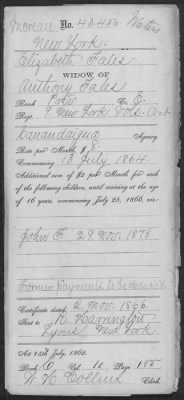 Increase No. 40.406. Waters
New York.
Elizabeth Fales
WIDOW OF
Anthony Fales
Rank Co. E.
Regt. 9 New York Vols. Art
Canandaigua Agency.
Rate per Month, $8.
Commencing 18 July 1864.
Additional sum of $2 per Month for each
of the following children, until arriving at the age
of 16 years, commencing July 25, 1866, viz:
John F. 29 Nov. 1878
Former payments to be deducted
Certificate dated 2 Nov. 1866
Sent to R. Harrington
Lyons New York
Act 14th July, 1862.
Book C Vol. 15 Page 185
W. H. Collins Clerk.